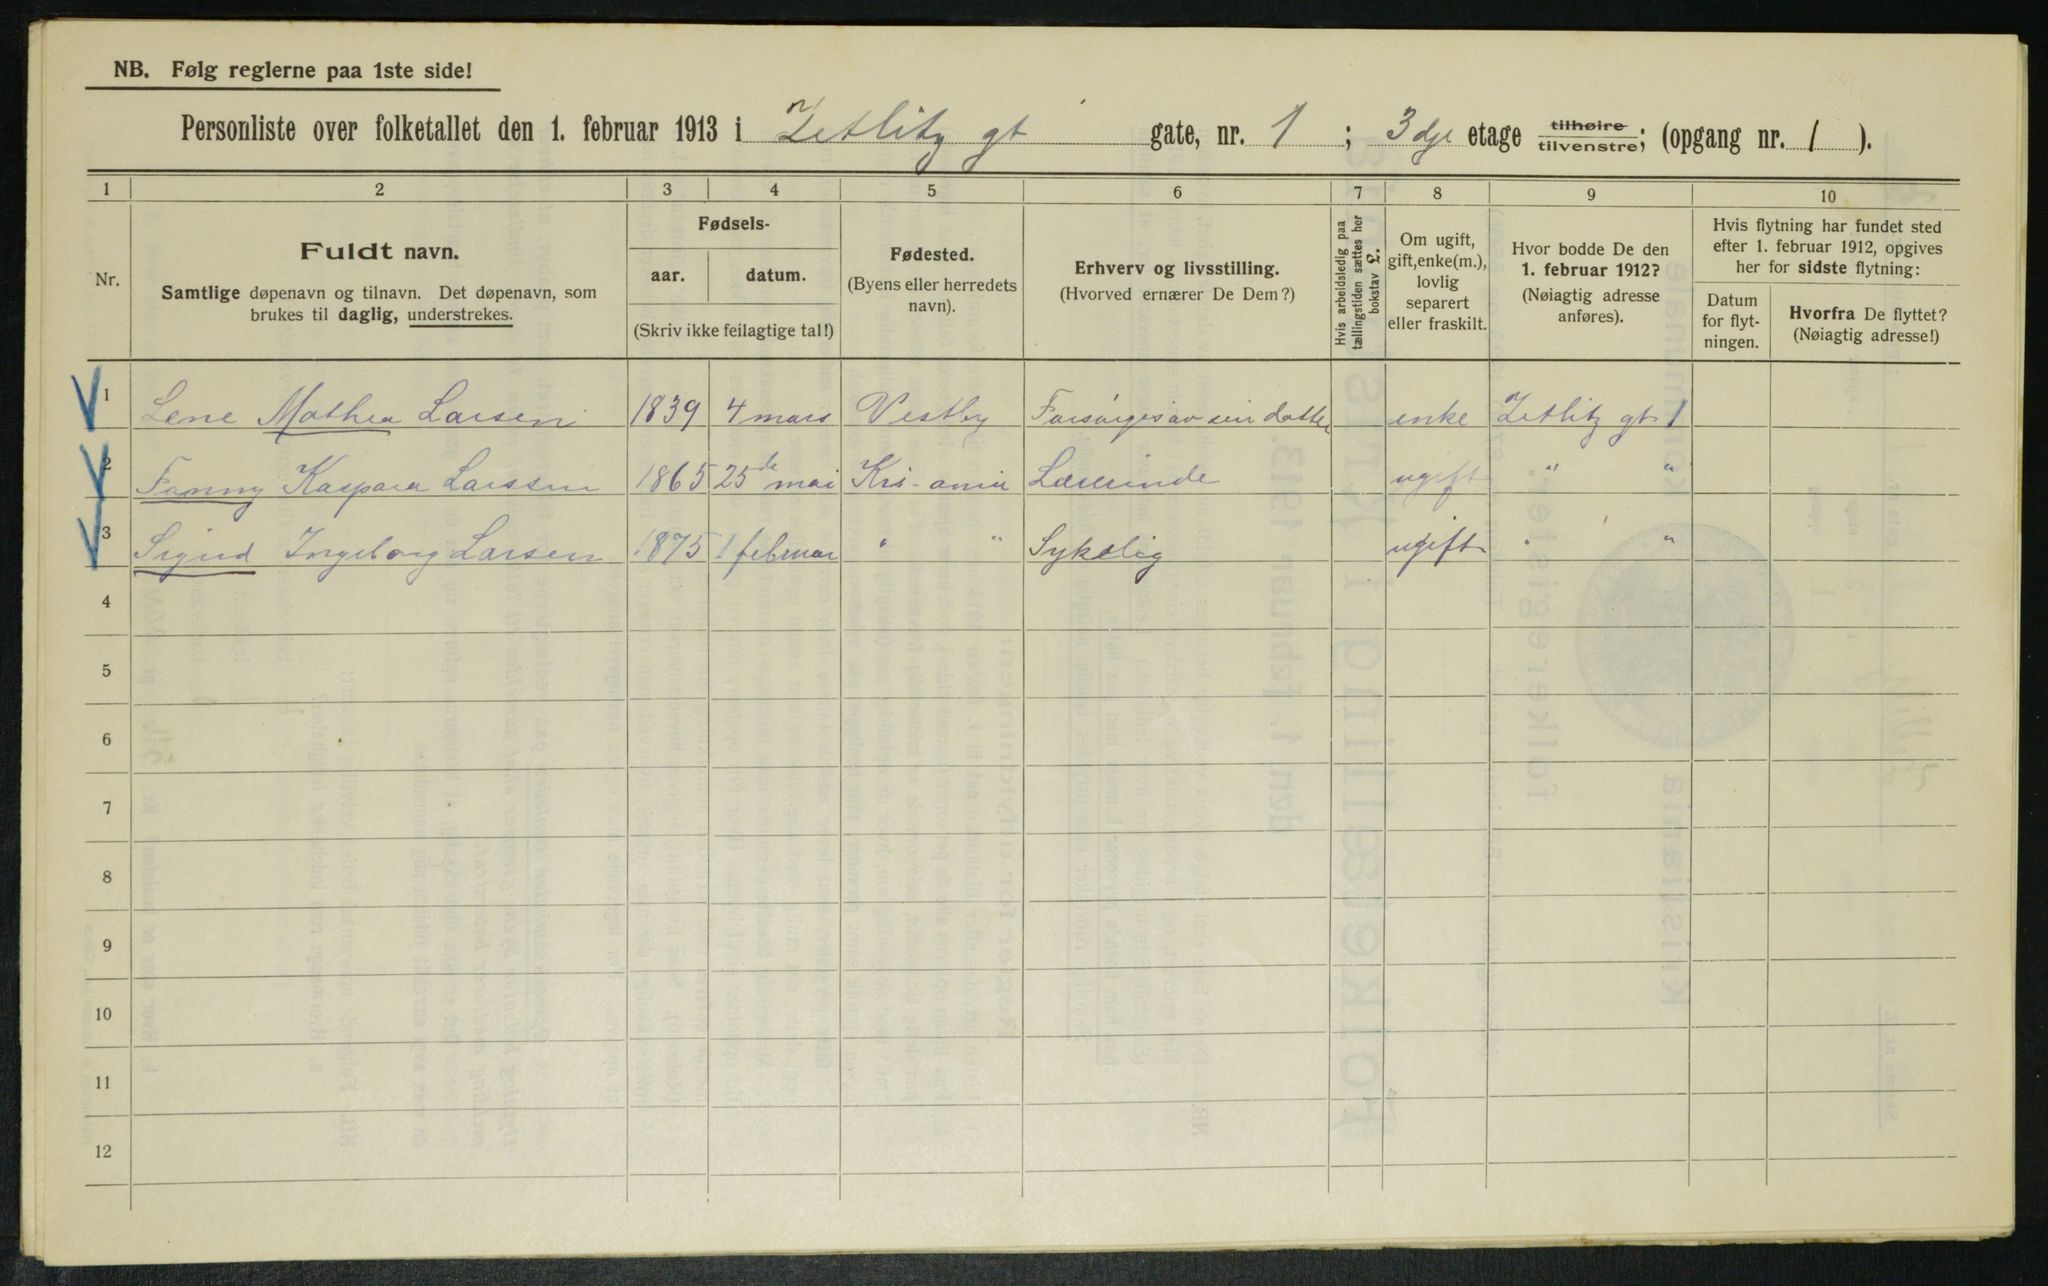 NB. Følg reglerne paa 1ste side!
Personliste over folketallet den 1. februar 1913 i Zetlitz gt gate, nr. 1 ; 3dje etage tilhøire tilvenstre; (opgang nr. 1 ).
1 2 3 4 5 6 7 8 9 10
Nr.
Fuldt navn.
Samtlige døpenavn og tilnavn. Det døpenavn, som
brukes til daglig, understrekes.
Fødsels-
aar. datum.
(Skriv ikke feilagtige tal!)
Fødested.
(Byens eller herredets
navn).
Erhverv og livsstilling.
(Hvorved ernærer De Dem?)
Hvis arbeidsledig paa
tællingstiden sættes her
bokstav L.
Om ugift,
gift, enke(m.),
lovlig
separert
eller fraskilt.
Hvor bodde De den
1. februar 1912?
(Nøiagtig adresse
anføres).
Hvis flytning har fundet sted
efter 1. februar 1912, opgives
her for sidste flytning:
Datum
for flyt-
ningen.
Hvorfra De flyttet?
(Nøiagtig adresse!)
1 Lene Mathea Larsen 1839 4 mars Vestby Forsørges av sin datter enke Zetlitz gt 1
2 Fanny Kaspara Larssen 1865 25de mai Kri-ania Lærerinde ugift " "
3 Sigrid Ingeborg Larsen 1875 1 februar " " Sykelig ugift " "
4
5
6
7
8
9
10
11
12